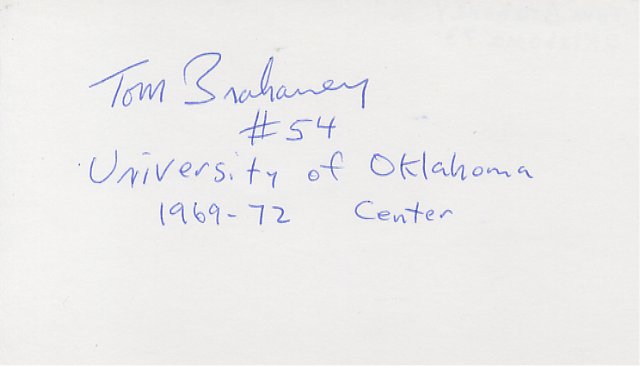 Tom Brahaney
#54
University of Oklahoma
1969-72 Center